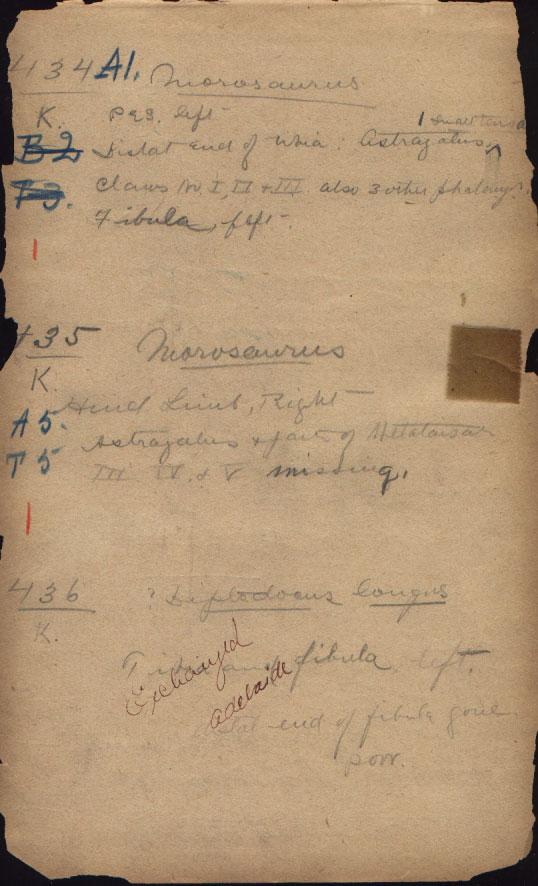 434 A1. Morosaurus
K. Pes. left
1 small tarsal
B2 Distal end of tibia: Astragalus
T3. Claws No. I, II + III also 3 other phalanges.
Fibula, left.
|
435 Morosaurus
K.
A5. Hind Limb, Right
T5 Astragalus & part of Metatarsal
III IV & V missing.
|
436 ? Diplodocus longus
K.
Tibia and fibula left.
Exchanged
Adelaide
distal end of fibula gone
poor.